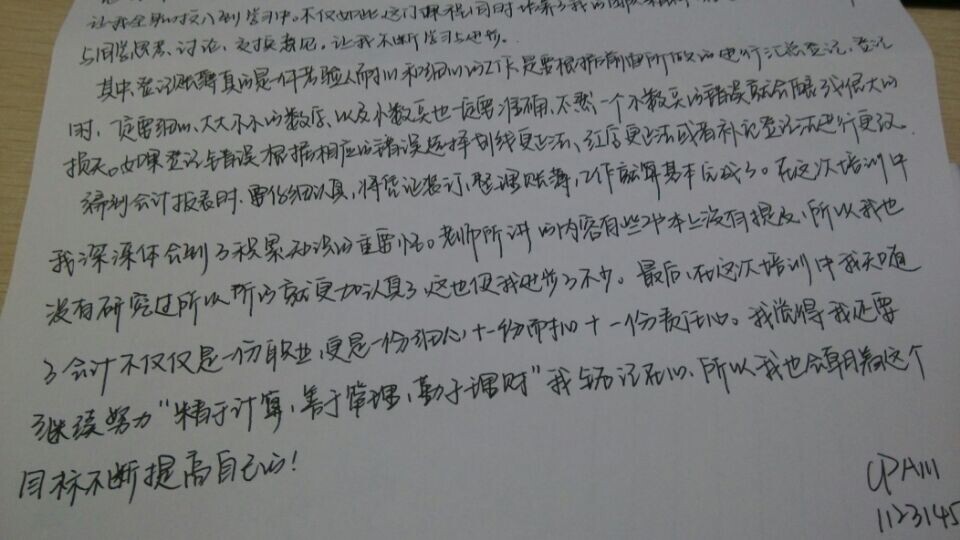 让我全身心投入到学习中。不仅如此，这门课程同时培养了我的团队
与同学思考、讨论、交换意见。让我不断学习与进步。
其中登记账簿真的是一件考验人耐心和细心的工作，是要根据前面所做的进行汇总登记，登记
时，一定要细心，大大小小的数字，以及小数点也一定要准确，不然一个小数点的错误就会酿成很大的
损失。如果登记错误根据相应的错误选择划线更正法、红字更正法或者补充登记法进行更改。
编制会计报表时，要仔细认真，将凭证装订，整理账簿，工作就算基本完成了。在这次培训中
我深深体会到了积累知识的重要性。老师所讲的内容有些书本上没有提及，所以我也
没有研究过所以听的就更加认真了，这也使我进步了不少。最后，在这次培训中我知道
了会计不仅仅是一份职业，更是一份细心+一份耐心+一份责任心。我觉得我还要
继续努力“精于计算，善于管理，勤于理财”我与谨记在心，所以我也会朝着这个
目标不断提高自己的！
CPA111
1123145